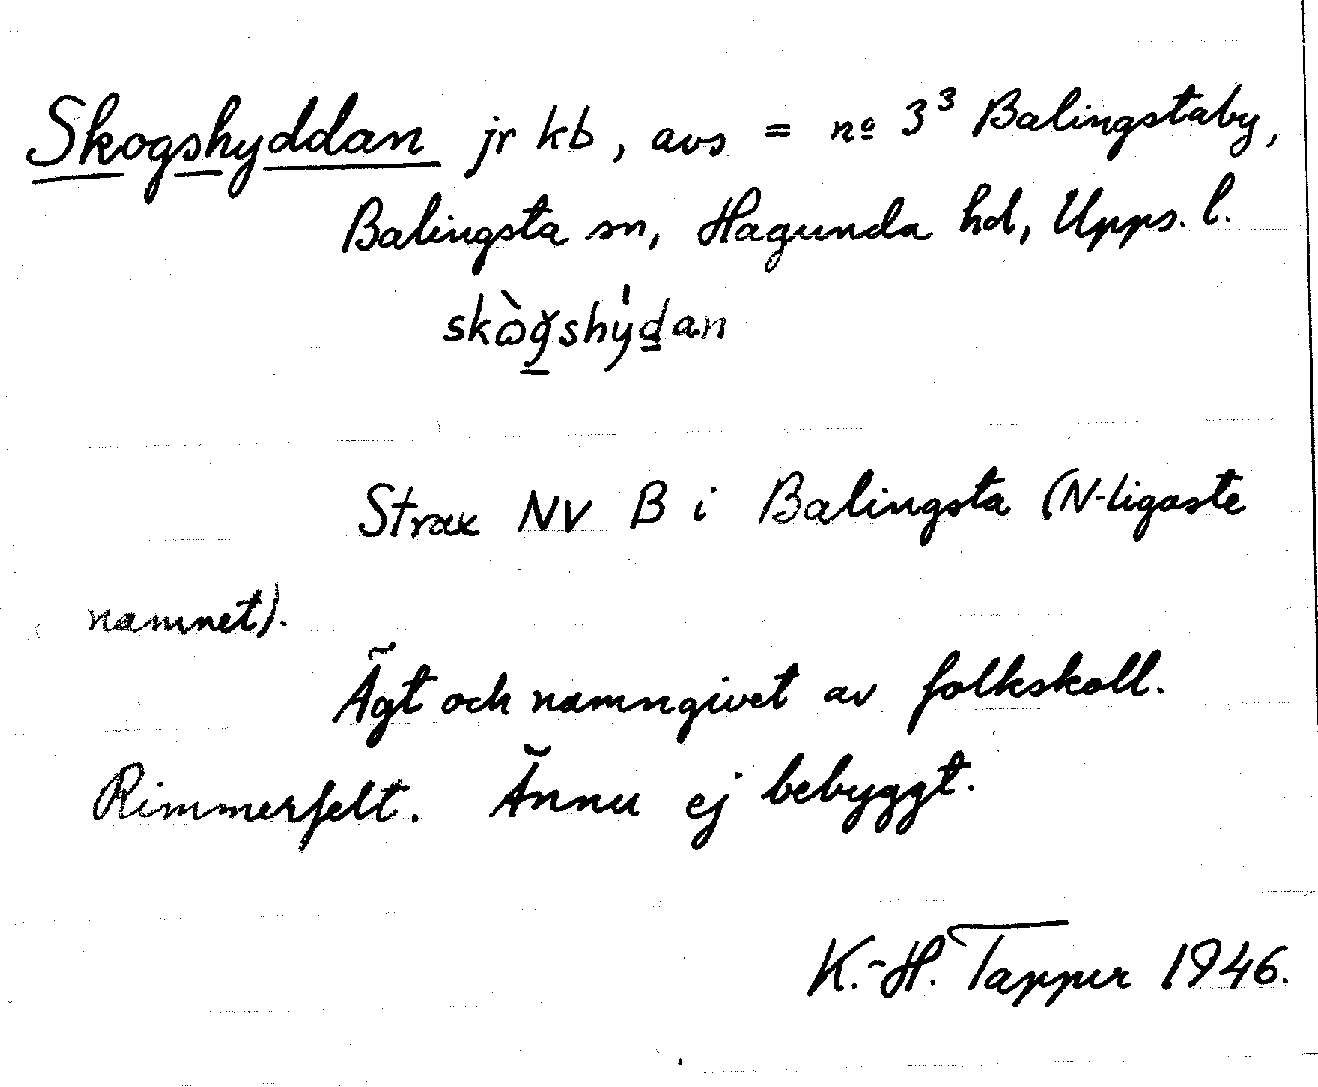 Skogshyddan jr kb, avs = nº 3³ Balingstaby,
Balingsta sn, Hagunda hd, Upps. l.
skòğshy̍dan
Strax NV B i Balingsta (N-ligaste
namnet).
Ägt och namngivet av folkskoll.
Rimmerfelt. Ännu ej bebyggt.
K.-H. Tapper 1946.